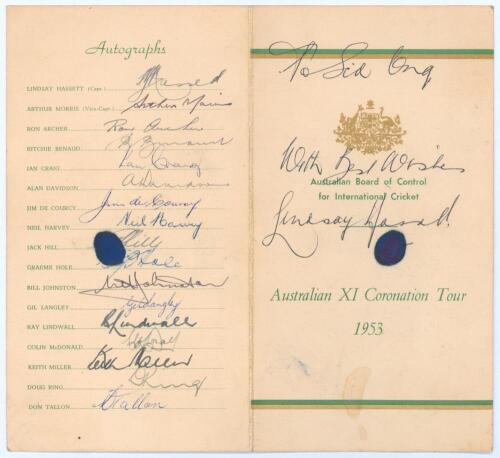 Autographs
LINDSAY HASSETT (Capt.) Hassett
ARTHUR MORRIS (Vice-Capt.) Arthur Morris
RON ARCHER Ron Archer
RITCHIE BENAUD R Benaud
IAN CRAIG Ian Craig
ALAN DAVIDSON A Davidson
JIM DE COURCY Jim de Courcy
NEIL HARVEY Neil Harvey
JACK HILL Hill
GRAEME HOLE Hole
BILL JOHNSTON W A Johnston
GIL LANGLEY Gil Langley
RAY LINDWALL R Lindwall
COLIN McDONALD
KEITH MILLER Keith Miller
DOUG RING D Ring
DON TALLON D Tallon
To Sid Ong
With Best Wishes
Australian Board of Control
for International Cricket
Lindsay Hassett
Australian XI Coronation Tour
1953